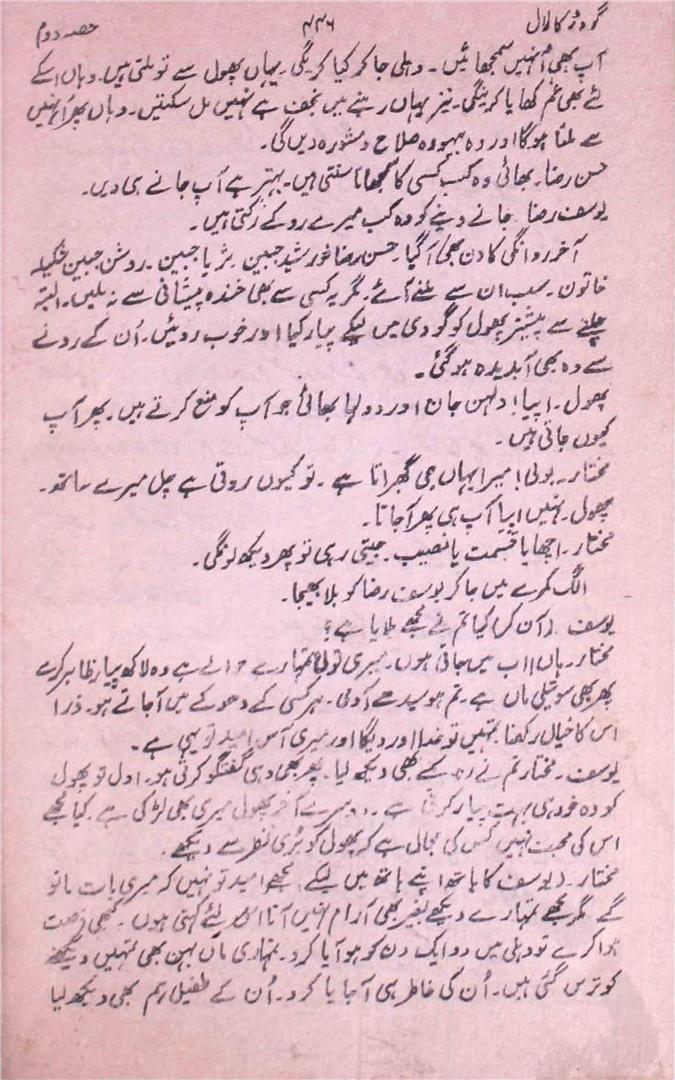 گودڑ کا لال ۴۴۶ حصہ دوم
آپ بھی اُنہیں سمجھائیں۔ دہلی جا کر کیا کرینگی۔ یہاں پھول سے تو ملتی ہیں۔ وہاں اسکے
لئے بھی غم کھایا کرینگی۔ نیز یہاں رہنے میں نجف سے نہیں مل سکتیں۔ وہاں پھر اُنہیں
سے ملنا ہوگا اور وہ بیہودہ صلاح و مشورہ دیں گی۔
حسن رضا۔ بھائی وہ کب کسی کا سمجھانا سنتی ہیں۔ بہتر ہے آپ جانے ہی دیں۔
یوسف رضا۔ جانے دینے کو وہ کب میرے روکے رکتی ہیں۔
آخر روانگی کا دن بھی آگیا۔ حسن رضا خورشید جبین۔ ثریا جبین۔ روشن جبین شکیلہ
خاتون۔ سب ان سے ملنے آئے۔ مگر یہ کسی سے بھی خندہ پیشانی سے نہ ملیں۔ البتہ
چلنے سے پیشتر پھول کو گودی میں لیکے پیار کیا اور خوب روئیں۔ اُن کے رونے
سے وہ بھی آبدیدہ ہوگئی۔
پھول۔ اپیا! دلہن جان اور دولہا بھائی جو آپ کو منع کرتے ہیں۔ پھر آپ
کیوں جاتی ہیں۔
مختار۔ بولی! میرا یہاں جی گھبراتا ہے۔ تو کیوں روتی ہے چل میرے ساتھ۔
پھول۔ نہیں اپیا آپ ہی پھر آجانا۔
مختار۔ اچھا یا قسمت یا نصیب۔ جیتی رہی تو پھر دیکھ لونگی۔
الگ کمرے میں جا کر یوسف رضا کو بلا بھیجا۔
یوسف (آن کر) کیا تم نے مجھے بلایا ہے؟
مختار۔ ہاں! اب میں جاتی ہوں۔ میری تولی تمہارے حوالے ہے وہ لاکھ پیار ظاہر کرے
پھر بھی سوتیلی ماں ہے۔ تم ہو سیدھے آدمی۔ ہر کسی کے دھوکے میں آجاتے ہو۔ ذرا
اس کا خیال رکھنا تمہیں تو خدا اور دیگا اور میری آس امید تو یہی ہے۔
یوسف۔ مختار تم نے رہ کے بھی دیکھ لیا۔ پھر بھی وہی گفتگو کرتی ہو۔ اول تو پھول
کو وہ خود ہی بہت پیار کرتی ہے۔ دوسرے آخر پھول میری بھی لڑکی ہے۔ کیا مجھے
اس کی محبت نہیں کس کی مجال ہے کہ پھول کو بُری نظر سے دیکھے۔
مختار۔ (یوسف کا ہاتھ اپنے ہاتھ میں لیکے) مجھے امید تو نہیں کہ میری بات مانو
گے۔ مگر مجھے تمہارے دیکھے بغیر بھی آرام نہیں آتا اس لئے کہتی ہوں۔ کبھی فرصت
ہوا کرے تو دہلی میں دو ایک دن کو ہو آیا کرو۔ تمہاری ماں بہن بھی تمہیں دیکھنے
کو ترس گئی ہیں۔ اُن کی خاطر ہی آجایا کرو۔ اُن کے طفیل ہم بھی دیکھ لیا